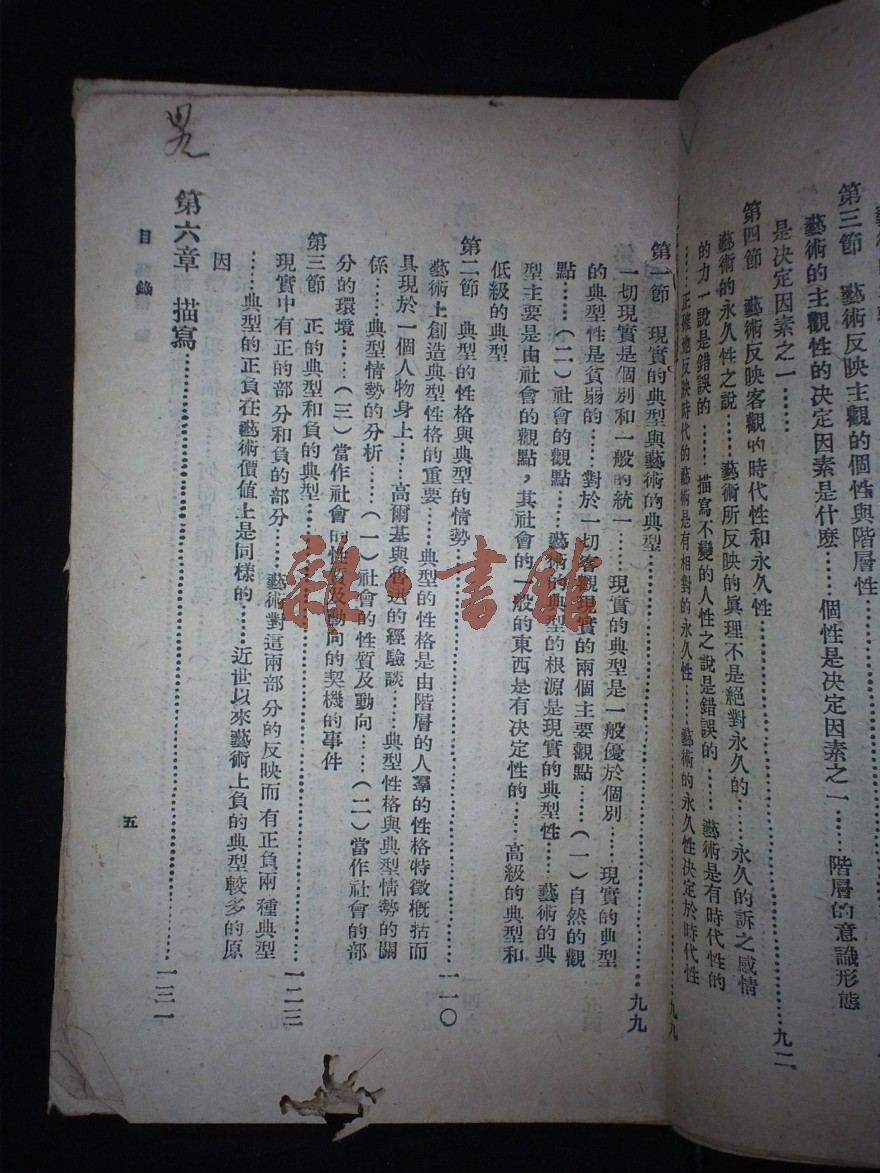 第三節　藝術反映主觀的個性與階層性
藝術的主觀性的決定因素是什麽……個性是決定因素之一……階層的意識形態
是決定因素之一……九二
第四節　藝術反映客觀的時代性和永久性
藝術的永久性之說……藝術所反映的眞理不是絕對永久的……永久的訴之感情
的力一說是錯誤的……描寫不變的人性之說是錯誤的……藝術是有時代性的
……正確地反映時代的藝術是有相對的永久性……藝術的永久性決定於時代性
九九
第一節　現實的典型與藝術的典型……九九
一切現實是個別和一般的統一……現實的典型是一般優於個別……現實的典型
的典型性是貧弱的……對於一切客觀現實的兩個主要觀點……（一）自然的觀
點……（二）社會的觀點……藝術的典型的根源是現實的典型性……藝術的典
型主要是由社會的觀點，其社會的一般的東西是有決定性的……高級的典型和
低級的典型
第二節　典型的性格與典型的情勢……一一〇
藝術上創造典型性格的重要……典型的性格是由階層的人羣的性格特徵槪括而
具現於一個人物身上……高爾基與魯迅的經驗談……典型性格與典型情勢的關
係……典型情勢的分析……（一）社會的性質及動向……（二）當作社會的部
分的環境……（三）當作社會的性質及動向的契機的事件
第三節　正的典型和負的典型……一二三
現實中有正的部分和負的部分……藝術對這兩部分的反映而有正負兩種典型
……典型的正負在藝術價值上是同樣的……近世以來藝術上負的典型較多的原
因
第六章　描寫……一三一
目　錄
五
雜·書館